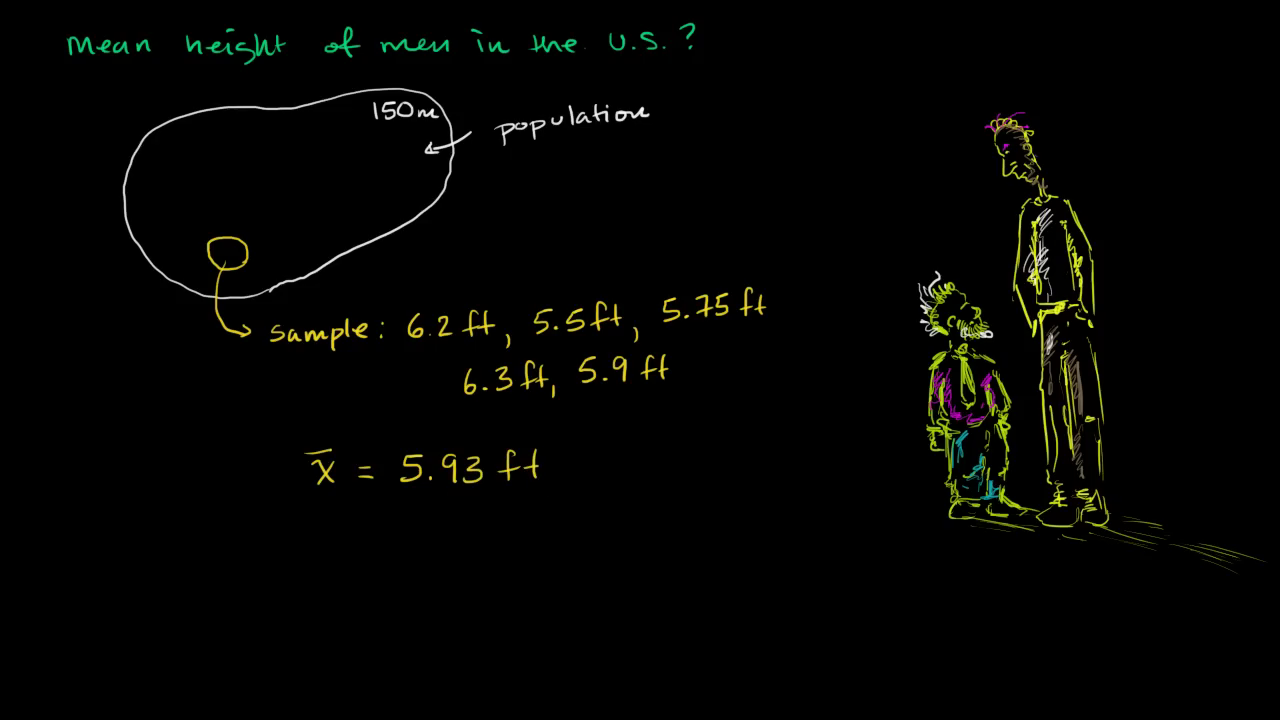 Mean height of men in the U.S.?
150m
population
sample: 6.2 ft, 5.5ft, 5.75 ft
6.3 ft, 5.9 ft
x̄ = 5.93 ft